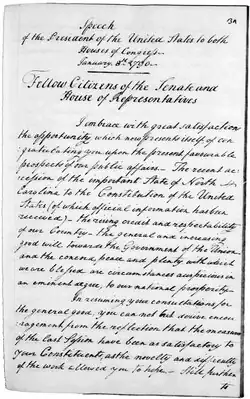 3A
Speech
of the President of the United States to both
Houses of Congress
January 8th 1790.
Fellow Citizens of the Senate and
House of Representatives
I embrace with great satisfaction
the opportunity, which now presents itself, of con-
gratulating you upon the present favourable
prospects of our public affairs — The recent ac-
cession of the important State of North
Carolina to the Constitution of the United
States (of which official information has been
received) — the rising credit and respectability
of our Country — the general and increasing
good will towards the Government of the Union
and the concord, peace and plenty with which
we are blessed are circumstances auspicious in
an eminent degree to our national prosperity —
In resuming your consultations for
the general good, you can not but derive encou-
ragement from the reflection, that the measures
of the last Session have been as satisfactory to
your Constituents, as the novelty and difficulty
of the work allowed you to hope — Still further
to